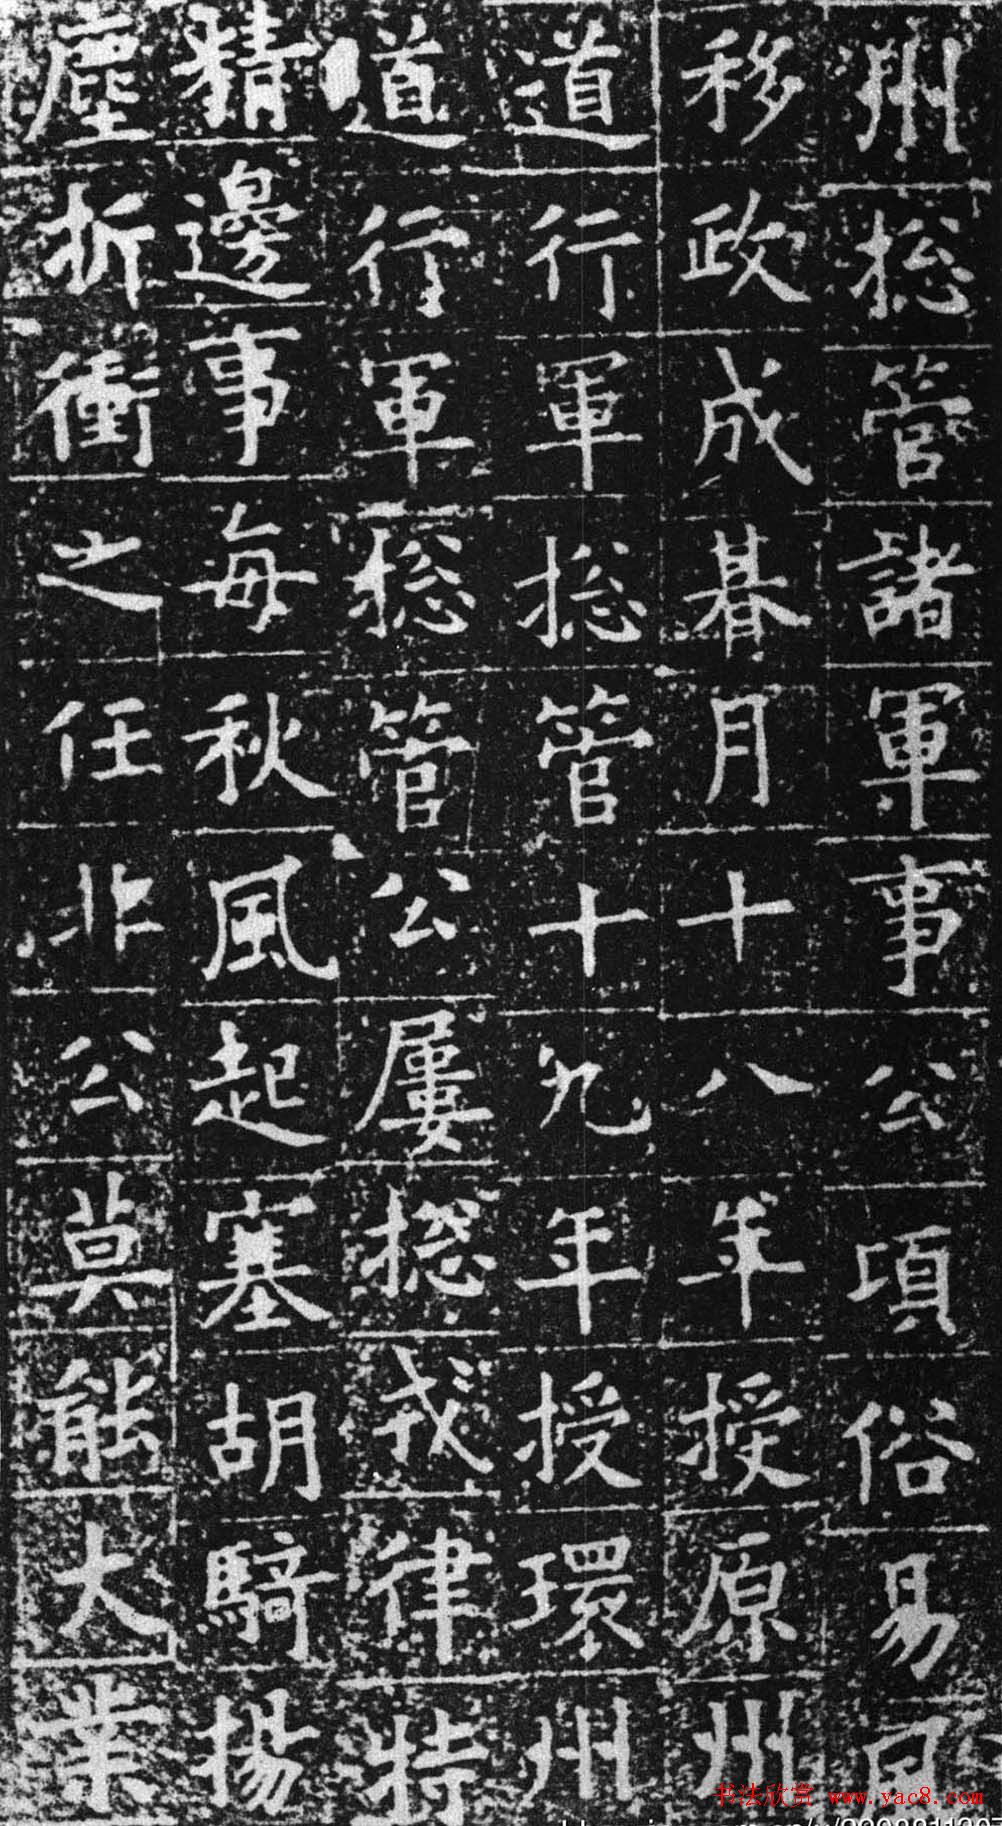 州揔管諸軍事公項俗易風
移政成朞月十八年授原州
道行軍揔管十九年授環州
道行軍揔管公屢揔戎律特
精邊事每秋風起塞胡騎揚
塵折衝之任非公莫能大業
书法欣赏 www.yac8.com